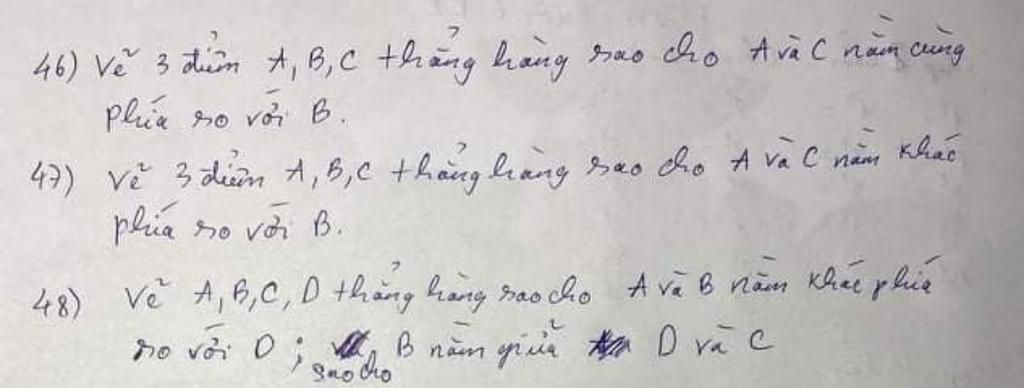 46) Vẽ 3 điểm A, B, C thẳng hàng sao cho A và C nằm cùng
phía so với B.
47) Vẽ 3 điểm A, B, C thẳng hàng sao cho A và C nằm khác
phía so với B.
48) Vẽ A, B, C, D thẳng hàng sao cho A và B nằm khác phía
so với D ; sao cho B nằm giữa D và C